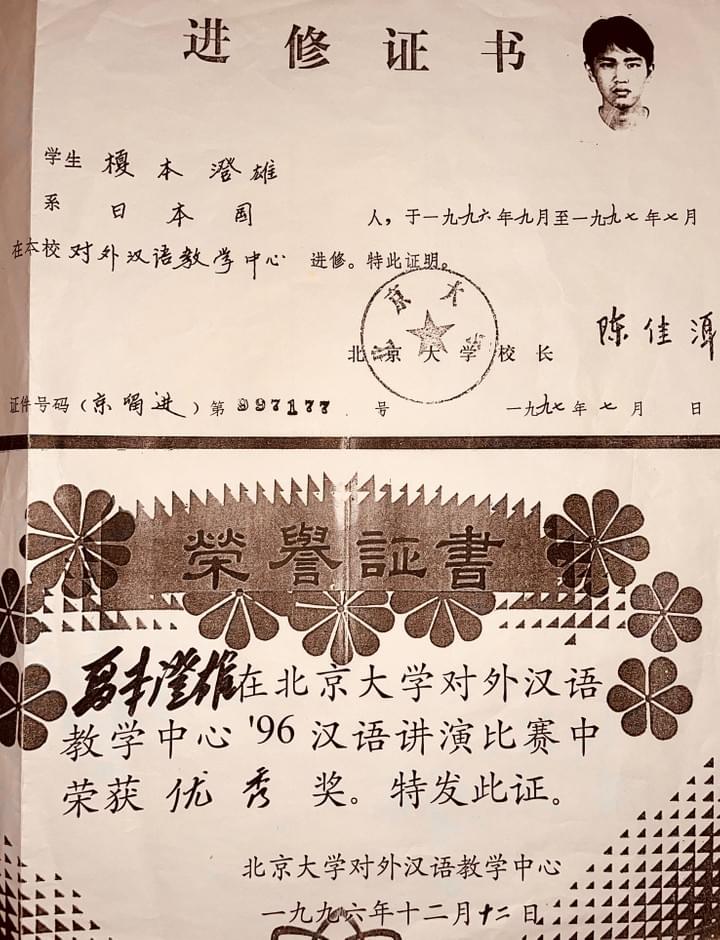 进修证书
学生 榎本澄雄
系 日本国 人，于一九九六年九月至一九九七年七月
在本校对外汉语教学中心 进修。特此证明。
北京大学校长 陈佳洱
证件号码（京留进）第 997177 号 一九九七年七月 日
榮譽証書
榎本澄雄在北京大学对外汉语
教学中心'96汉语讲演比赛中
荣获优秀奖。特发此证。
北京大学对外汉语教学中心
一九九六年十二月十二日